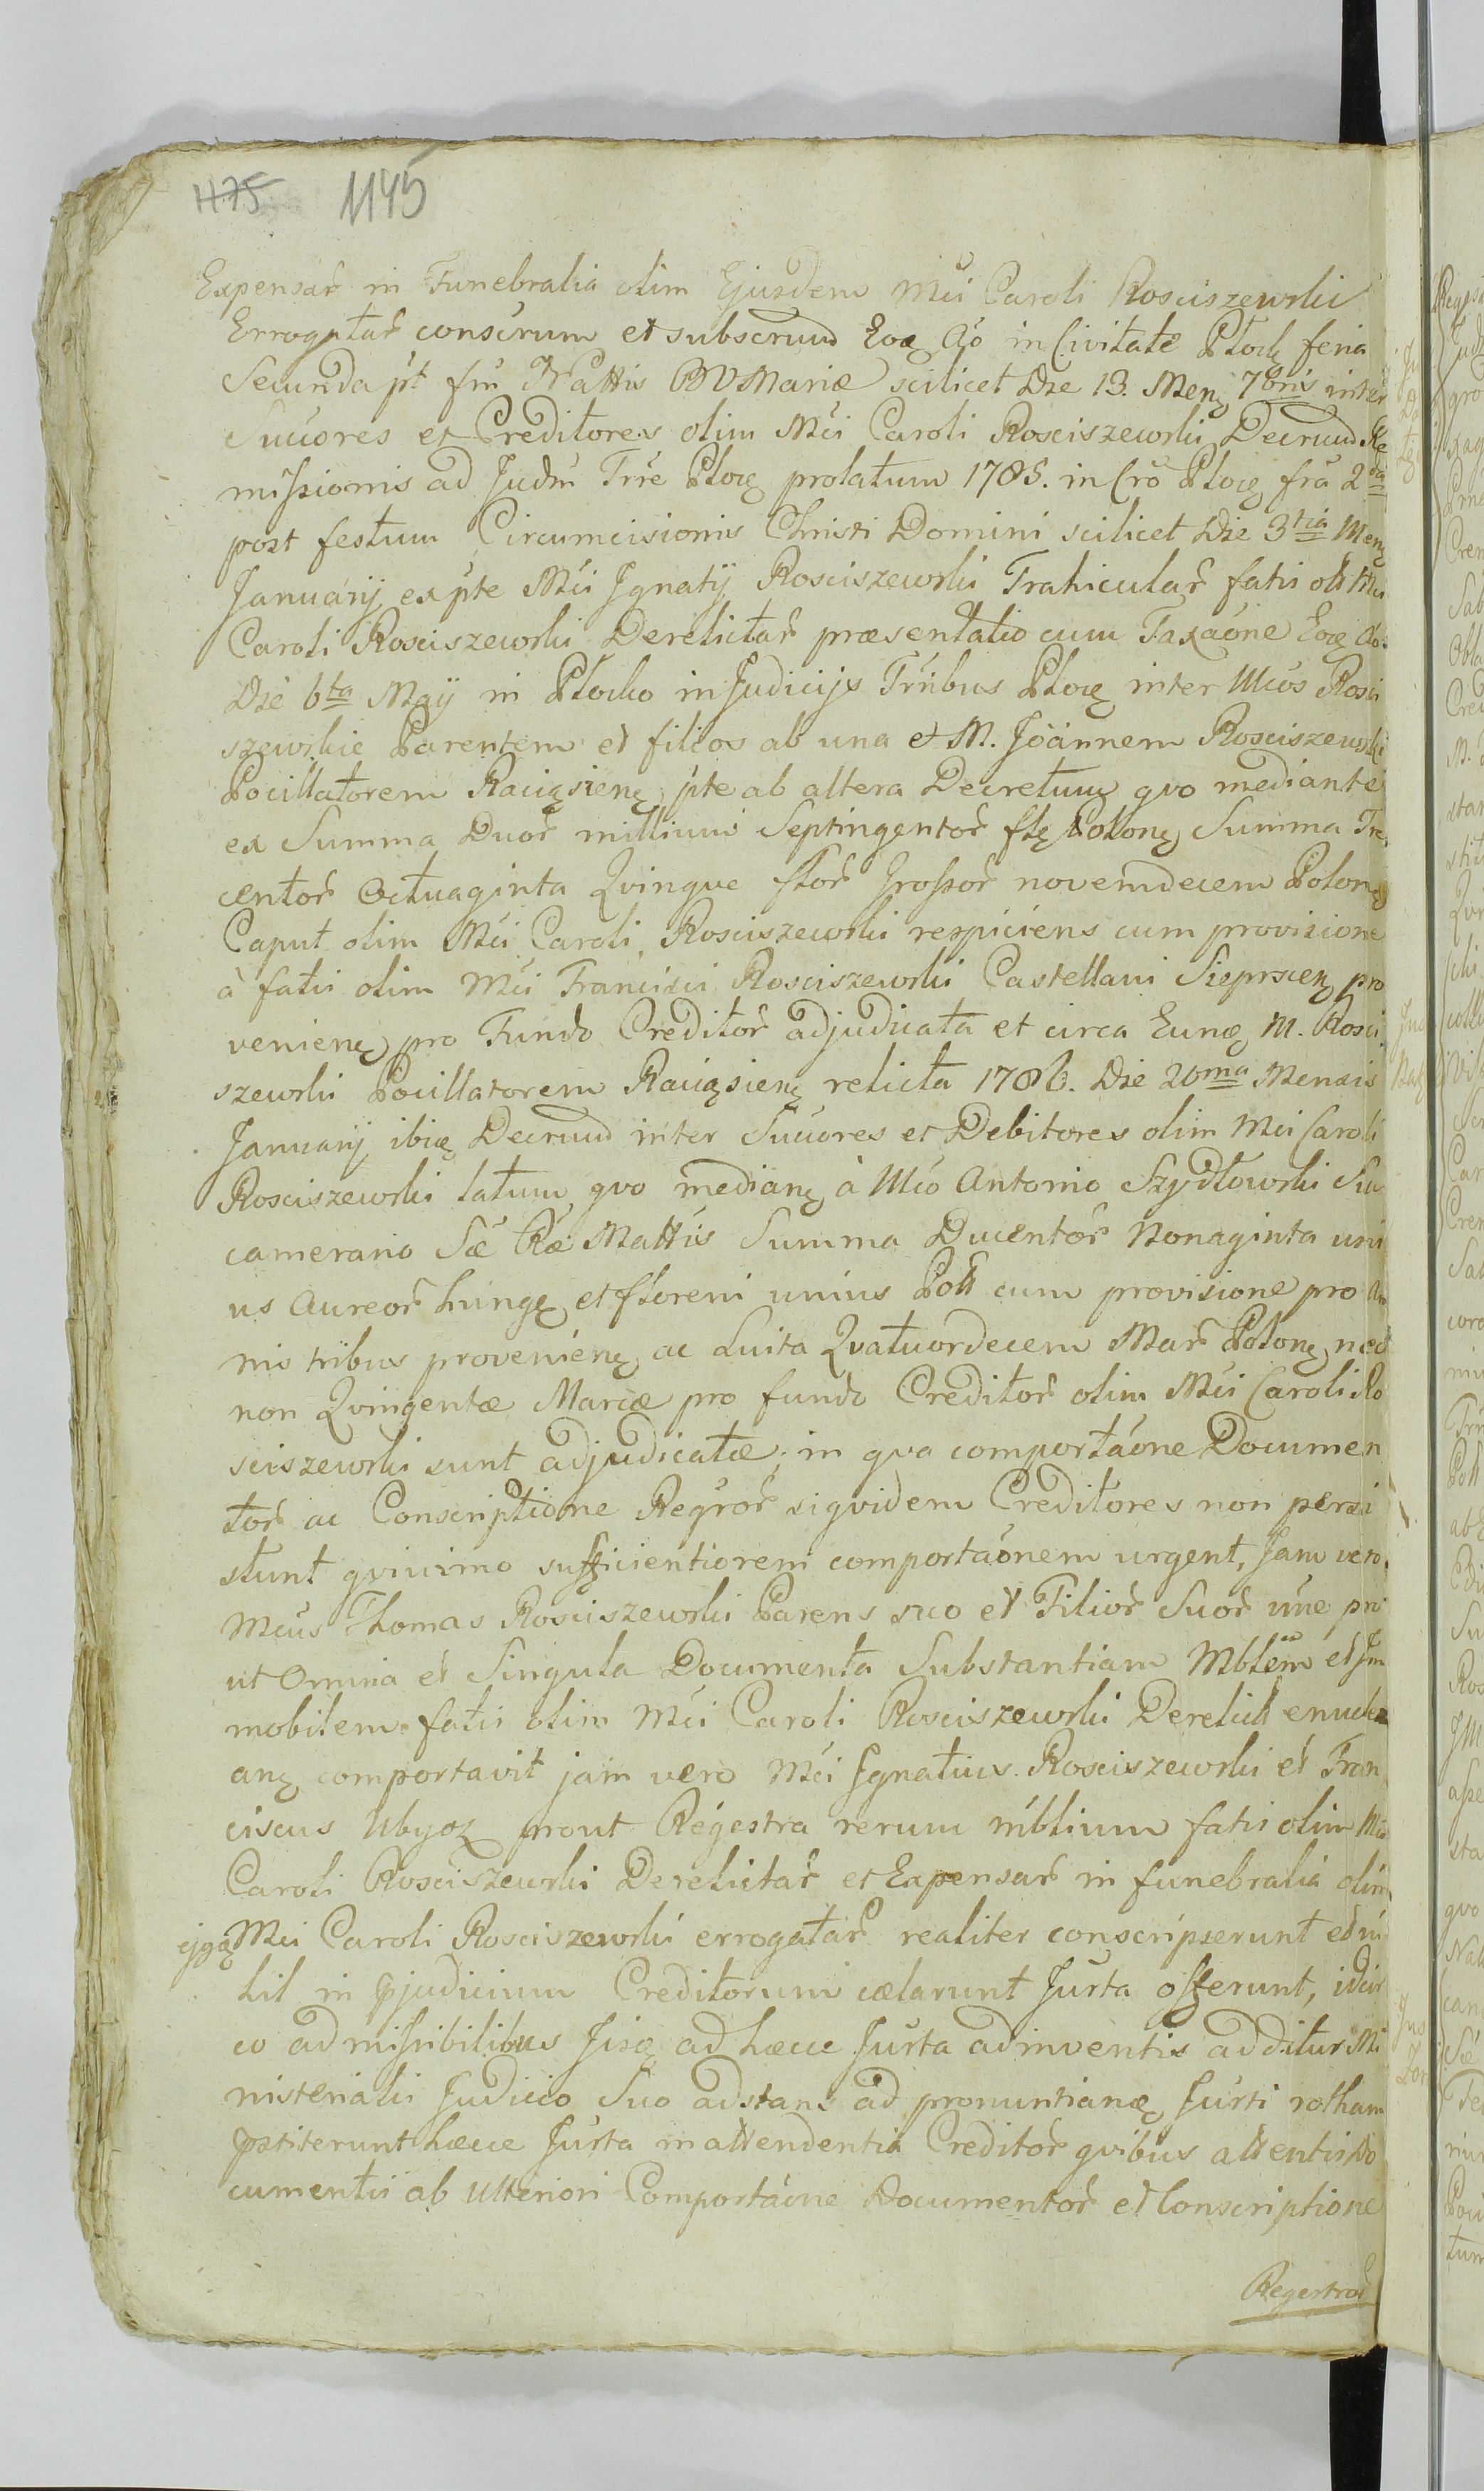 1175 1145
Expensar̃ in Funebralia olim Ejusdem Mĉi Caroli Rosciszewski
Errogatar̃ conscrum et subscrum Eoq Aō in Civitate Płock feria
Secunda pt fm Nattis BVMariæ scilicet Die 13. Menq 7bris inter
Succores et Creditores olim Mći Caroli Rosciszewski Decrum Re
missionis ad Judm Trre Płocq prolatum 1785. in Cro Płocq fra 2da
post festum Circumcisionis Christi Domini scilicet Die 3tia Menq
Januarij ex pte Mći Jgnatij Rosciszewski Trahicular̃ fatis olim Mći
Caroli Rosciszewski Derelictar̃ præsentatio cum Taxaōne Eoq Ao.
Die 6ta Maij in Płocko in Judicijs Trribus Płocq inter Mcos Rosci
szewskie Parentem et filios ab una et M. Joannem Rosciszewski
Pocillatorem Raciąsienq pte ab altera Decretum qvo mediante
ex Summa Duor̃ millium Septingentor̃ flq Polonq Summa Tre
centor̃ Octuaginta Qvinqve flor̃ Grossor̃ novemdecem Polonq
Caput olim Mći Caroli Rosciszewski respiciens cum provisione
à fatis olim Mći Francisci Rosciszewski Castellani Sieprscenq pro
venienq pro Fundo Creditor̃ adjudicata et circa Eunq M. Rosci
szewski Pocillatorem Raciąsienq relicta 1786. Die 20ma Mensis
Januarij ibiq Decrum inter Succores et Debitores olim Mći Caroli
Rosciszewski latum qvo medianq à Mćo Antonio Szydłowski Suc
camerario Sæ Ræ Mattis Summa Ducentor̃ Nonaginta uni
us Aureor̃ hungq et floreni unius Poll cum provisione pro An
nis tribus provenienq ac Luita Qvatuordecem Mar̃ Polonq nec
non Qvingentæ Marcæ pro fundo Creditor̃ olim Mći Caroli Ro
sciszewski sunt adjudicatæ, in qva comportaōne Documen
tor̃ ac Conscriptione Regror̃ siqvidem Creditores non persi
stunt qvinimo sufficientiorem comportaōnem urgent, Jam vero
Mćus Thomas Rosciszewski Parens suo et Filior̃ Suor̃ ūne pro
ut Omnia et Singula Documenta Substantiam Mblem et Jm
mobilem fatis olim Mći Caroli Rosciszewski Derelict enucle
anq comportavit jam vero Mći Jgnatius Rosciszewski et Fran
ciscus Ubysz prout Regestra rerum mblium fatis olim Mći
Caroli Rosciszewski Derelictar̃ et Expensar̃ in funebralia olim
ejgq Mći Caroli Rosciszewski errogatar̃ realiter conscripserunt et ni
hil in pjudicium Creditorum cælarunt Jurta offerunt, idcir
co admissibilibus Jisq ad hæcce Jurta adinventis additur Mi
nisterialis Judicio Suo adstans ad pronuntianq Jurti rotham
pstiterunt hæcce Jurta in attendentia Creditor̃ qvibus attentis Do
cumentis ab Ulteriori Comportaōne Documentor̃ et Conscriptione
Regestror̃